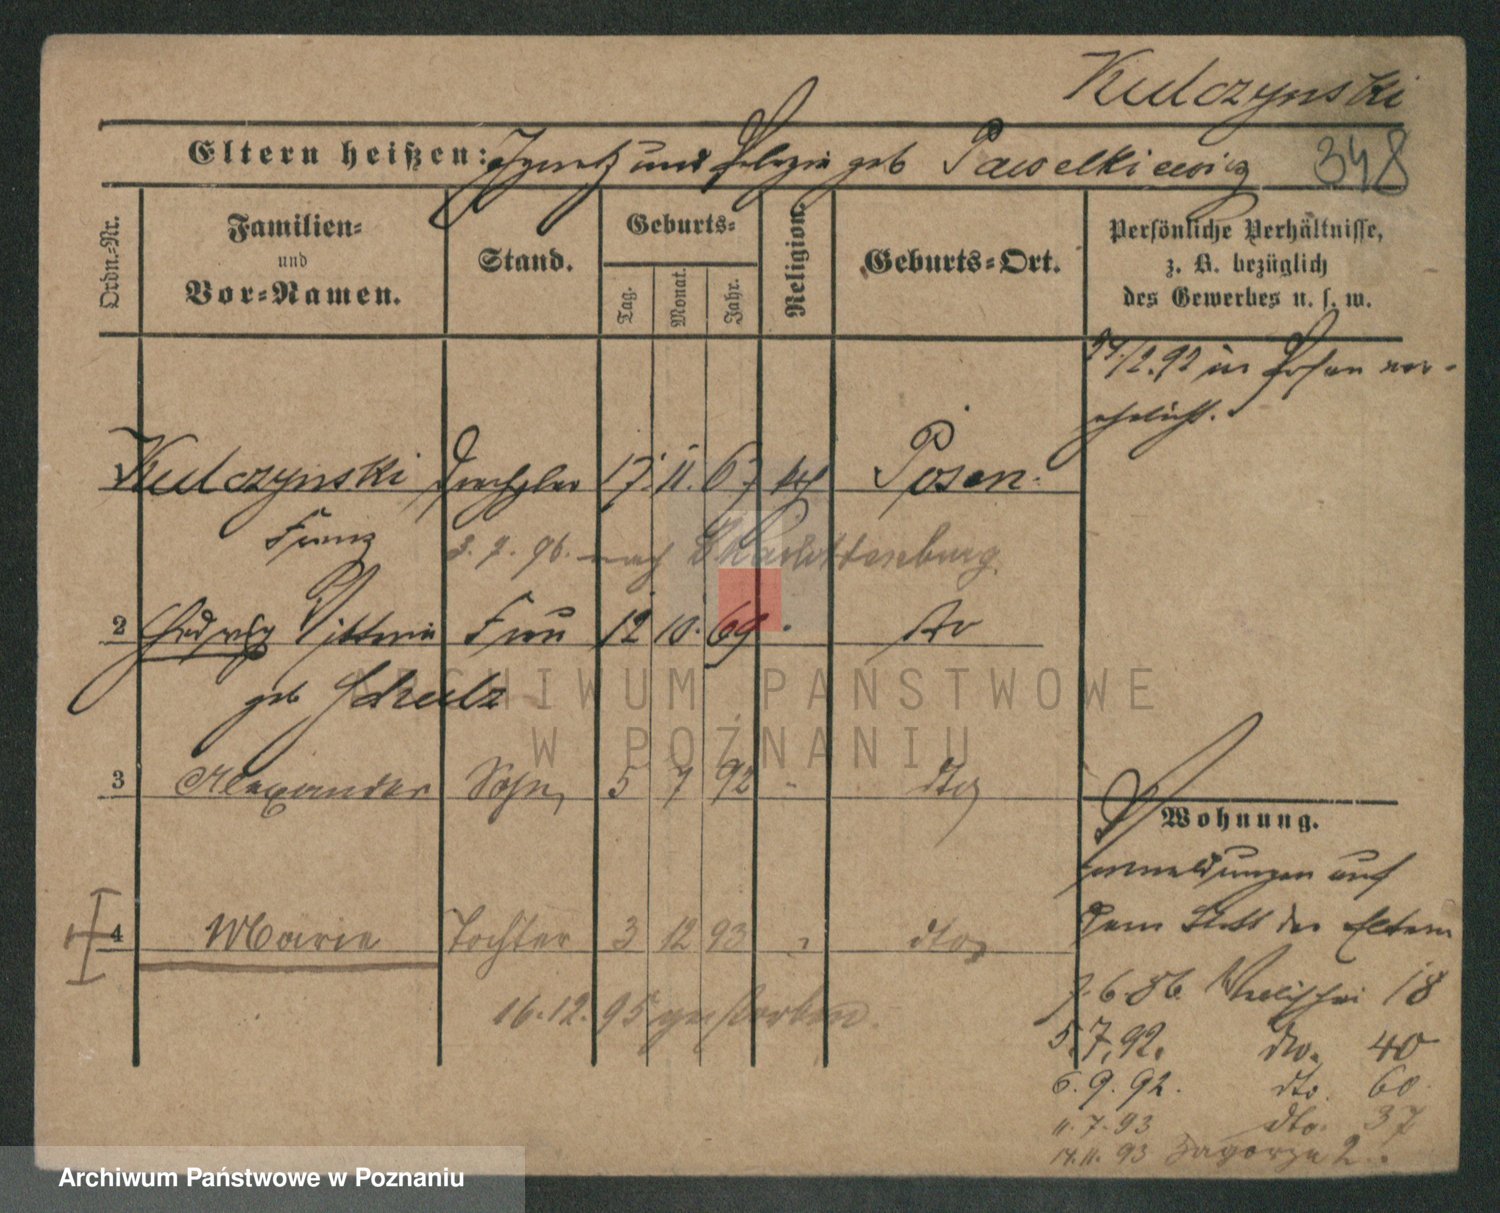 Kulczynski
Eltern heißen: Ignatz und Pelagia geb Pawelkiewicz
348
Ordn.-Nr.
Familien-
und
Vor-Namen.
Stand.
Geburts-
Tag.
Monat.
Jahr.
Religion.
Geburts-Ort.
Persönliche Verhältnisse,
z. B. bezüglich
des Gewerbes u. s. w.
/2.92 in Posen ver-
ehelicht.
Kulczynski Drechsler 17. 11. 67 kth Posen.
Franz
3. 7. 96. nach Charlottenburg
2 Hedwig Viktoria Frau 12 10. 69 " do
geb Schulz
3 Alexander Sohn 5 7 92 " dto
Wohnung.
4 Marie Tochter 3 12 93 " dto
16.12.95 gestorben.
Anmeldungen auf
dem Blatt der Eltern
7.6.86 Wallischei 18
5.7.92. dto. 40
6.9.92. dto. 60
11.7.93 dto. 37
14.11.93 Zagorze 2.
ARCHIWUM PAŃSTWOWE
W POZNANIU
Archiwum Państwowe w Poznaniu